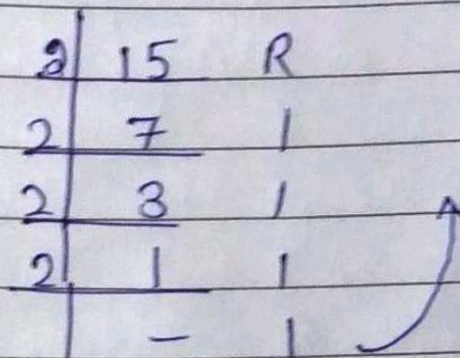 2 15 R
2 7 1
2 3 1
2 1 1
- 1